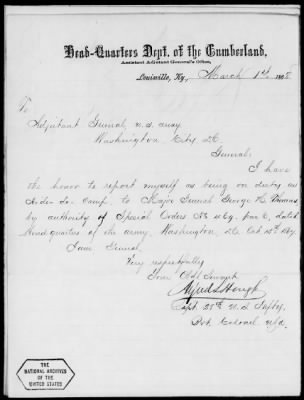 Head-Quarters Dept. of the Cumberland,
Assistant Adjutant General's Office,
Louisville, Ky., March 1st, 1868
To
Adjutant General U.S. Army
Washington City D.C.
General:
I have
the honor to report myself as being on duty as
Aide-de-Camp to Major General George H. Thomas
by authority of Special Orders par 6, dated
Head quarters of the Army, Washington, D.C. Oct 1867
I am General
Very respectfully
Your Obdt Servant
Alfred L. Hough
Capt. 27th U.S. Infty.
Bvt. Colonel U.S.A.
THE
NATIONAL ARCHIVES
OF THE
UNITED STATES